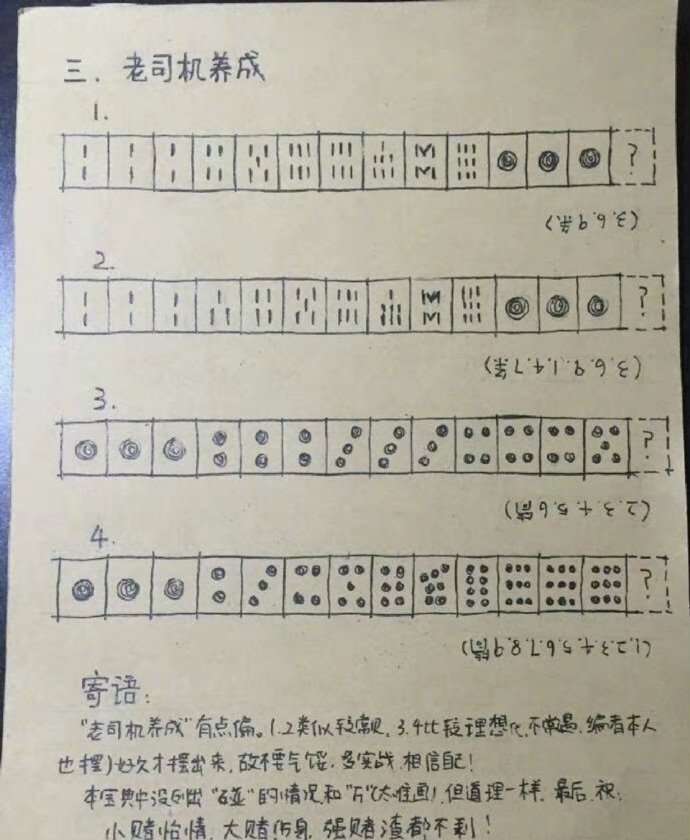 三. 老司机养成
1.
?
(3.6.9条)
2.
?
(3.6.9.1.4.7条)
3.
?
(2.3.4.5.6筒)
4.
?
(1.2.3.4.5.6.7.8.9筒)
寄语:
"老司机养成"有点偏。1.2类似较常见, 3.4比较理想化,不常遇. 编者本人
也摆了好久才摆出来, 故不要气馁. 多实战. 相信自己!
本宝典中没列出"碰"的情况和"万"(太难画), 但道理一样. 最后. 祝:
小赌怡情. 大赌伤身. 强赌渣都不剩!